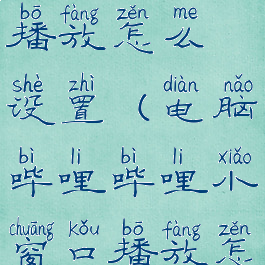 bō fàng zěn me
播放怎么
shè zhì diàn nǎo
设置（电脑
bì li bì li xiǎo
哔哩哔哩小
chuāng kǒu bō fàng zěn
窗口播放怎